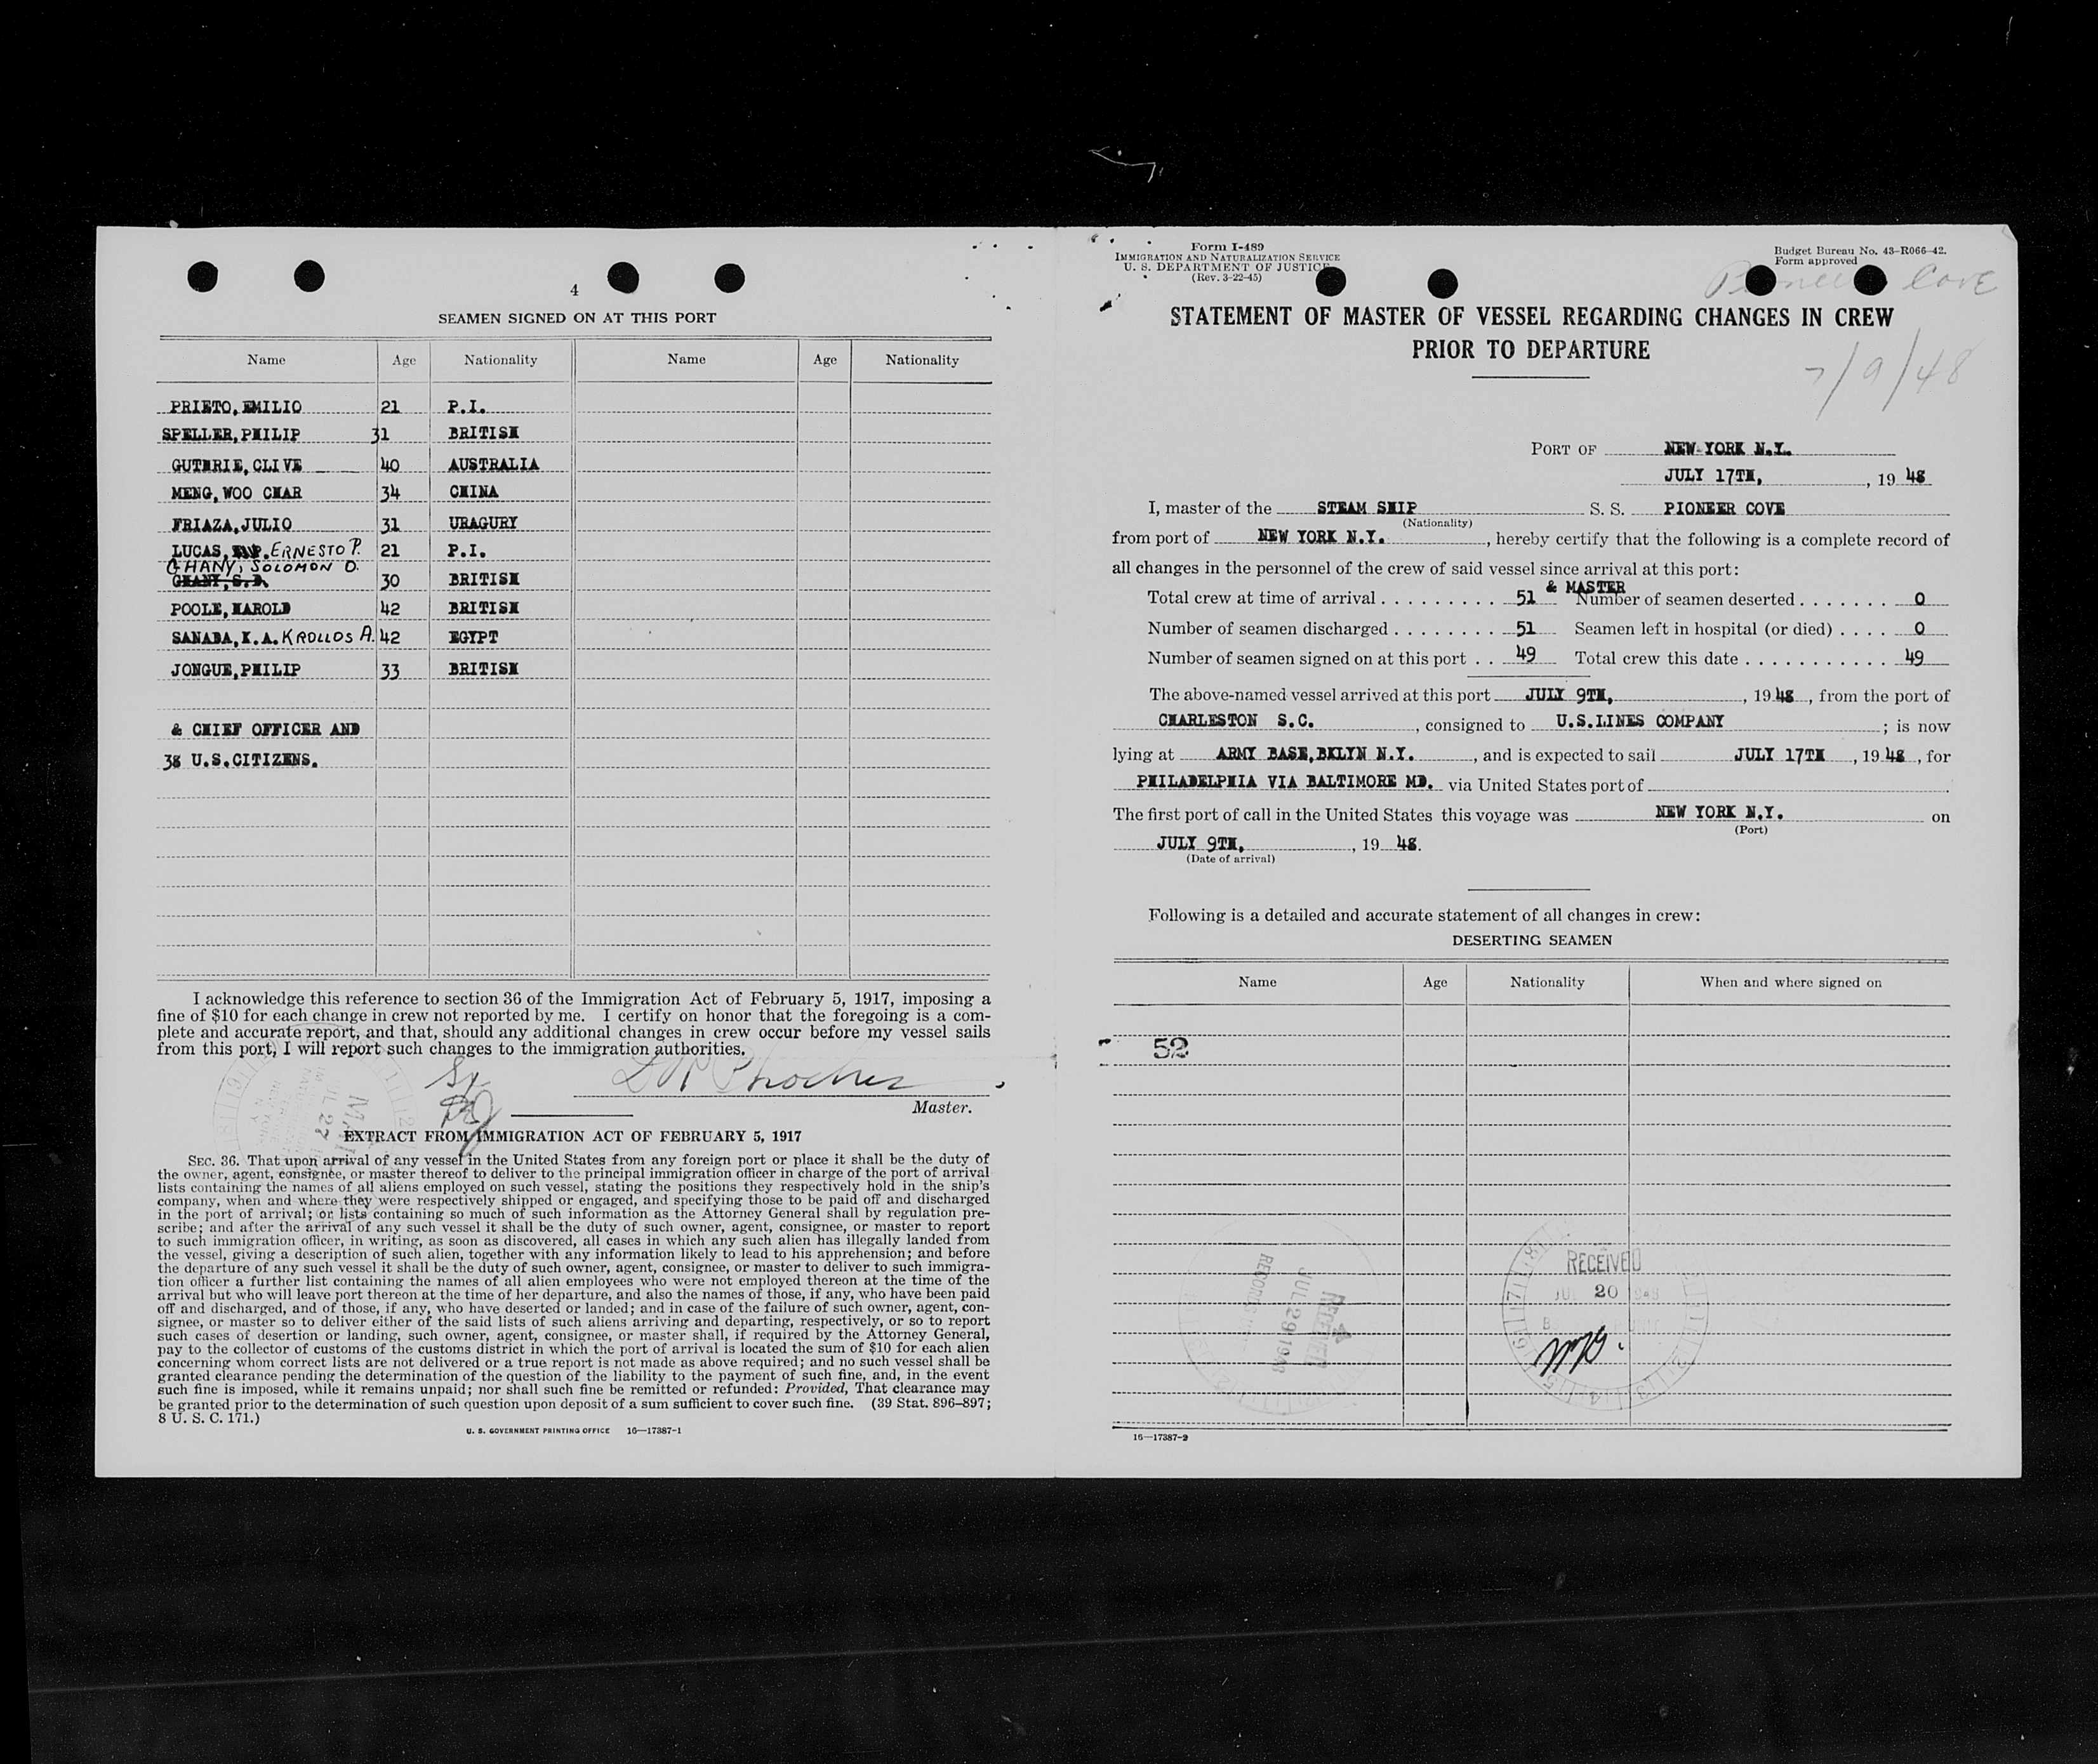 4
SEAMEN SIGNED ON AT THIS PORT
Name Age Nationality Name Age Nationality
PRIETO, EMILIO 21 P.I.
SPELLER, PHILIP 31 BRITISH
GUTHRIE, CLIVE 40 AUSTRALIA
MENG, WOO CHAR 34 CHINA
FRIAZA, JULIO 31 URAGURY
LUCAS, ERNESTO P. 21 P.I.
GHANY, SOLOMON O.
GHANY, S.D. 30 BRITISH
POOLE, HAROLD 42 BRITISH
SANABA, K.A. KROLLOS A. 42 EGYPT
JONGUE, PHILIP 33 BRITISH
& CHIEF OFFICER AND
38 U.S.CITIZENS.
I acknowledge this reference to section 36 of the Immigration Act of February 5, 1917, imposing a
fine of $10 for each change in crew not reported by me. I certify on honor that the foregoing is a com-
plete and accurate report, and that, should any additional changes in crew occur before my vessel sails
from this port, I will report such changes to the immigration authorities.
Master.
EXTRACT FROM IMMIGRATION ACT OF FEBRUARY 5, 1917
SEC. 36. That upon arrival of any vessel in the United States from any foreign port or place it shall be the duty of
the owner, agent, consignee, or master thereof to deliver to the principal immigration officer in charge of the port of arrival
lists containing the names of all aliens employed on such vessel, stating the positions they respectively hold in the ship's
company, when and where they were respectively shipped or engaged, and specifying those to be paid off and discharged
in the port of arrival; or lists containing so much of such information as the Attorney General shall by regulation pre-
scribe; and after the arrival of any such vessel it shall be the duty of such owner, agent, consignee, or master to report
to such immigration officer, in writing, as soon as discovered, all cases in which any such alien has illegally landed from
the vessel, giving a description of such alien, together with any information likely to lead to his apprehension; and before
the departure of any such vessel it shall be the duty of such owner, agent, consignee, or master to deliver to such immigra-
tion officer a further list containing the names of all alien employees who were not employed thereon at the time of the
arrival but who will leave port thereon at the time of her departure, and also the names of those, if any, who have been paid
off and discharged, and of those, if any, who have deserted or landed; and in case of the failure of such owner, agent, con-
signee, or master so to deliver either of the said lists of such aliens arriving and departing, respectively, or so to report
such cases of desertion or landing, such owner, agent, consignee, or master shall, if required by the Attorney General,
pay to the collector of customs of the customs district in which the port of arrival is located the sum of $10 for each alien
concerning whom correct lists are not delivered or a true report is not made as above required; and no such vessel shall be
granted clearance pending the determination of the question of the liability to the payment of such fine, and, in the event
such fine is imposed, while it remains unpaid; nor shall such fine be remitted or refunded: Provided, That clearance may
be granted prior to the determination of such question upon deposit of a sum sufficient to cover such fine. (39 Stat. 896–897;
8 U. S. C. 171.)
U. S. GOVERNMENT PRINTING OFFICE 16—17387-1
Form I-489
IMMIGRATION AND NATURALIZATION SERVICE
U. S. DEPARTMENT OF JUSTICE
(Rev. 3-22-45)
Budget Bureau No. 43-R066-42.
Form approved
Cove
STATEMENT OF MASTER OF VESSEL REGARDING CHANGES IN CREW
PRIOR TO DEPARTURE
7/9/48
PORT OF NEW YORK N.Y.
JULY 17TH, , 19 48
I, master of the STEAM SHIP S. S. PIONEER COVE
(Nationality)
from port of NEW YORK N.Y. , hereby certify that the following is a complete record of
all changes in the personnel of the crew of said vessel since arrival at this port:
Total crew at time of arrival 51 & MASTER Number of seamen deserted 0
Number of seamen discharged 51 Seamen left in hospital (or died) 0
Number of seamen signed on at this port 49 Total crew this date 49
The above-named vessel arrived at this port JULY 9TH, , 19 48 , from the port of
CHARLESTON S.C. , consigned to U.S.LINES COMPANY ; is now
lying at ARMY BASE, BKLYN N.Y. , and is expected to sail JULY 17TH , 19 48 , for
PHILADELPHIA VIA BALTIMORE MD. via United States port of .
The first port of call in the United States this voyage was NEW YORK N.Y. on
(Port)
JULY 9TH, , 19 48.
(Date of arrival)
Following is a detailed and accurate statement of all changes in crew:
DESERTING SEAMEN
Name Age Nationality When and where signed on
52
RECEIVED
20
RECEIVED
JUL 29 1948
16—17387-2